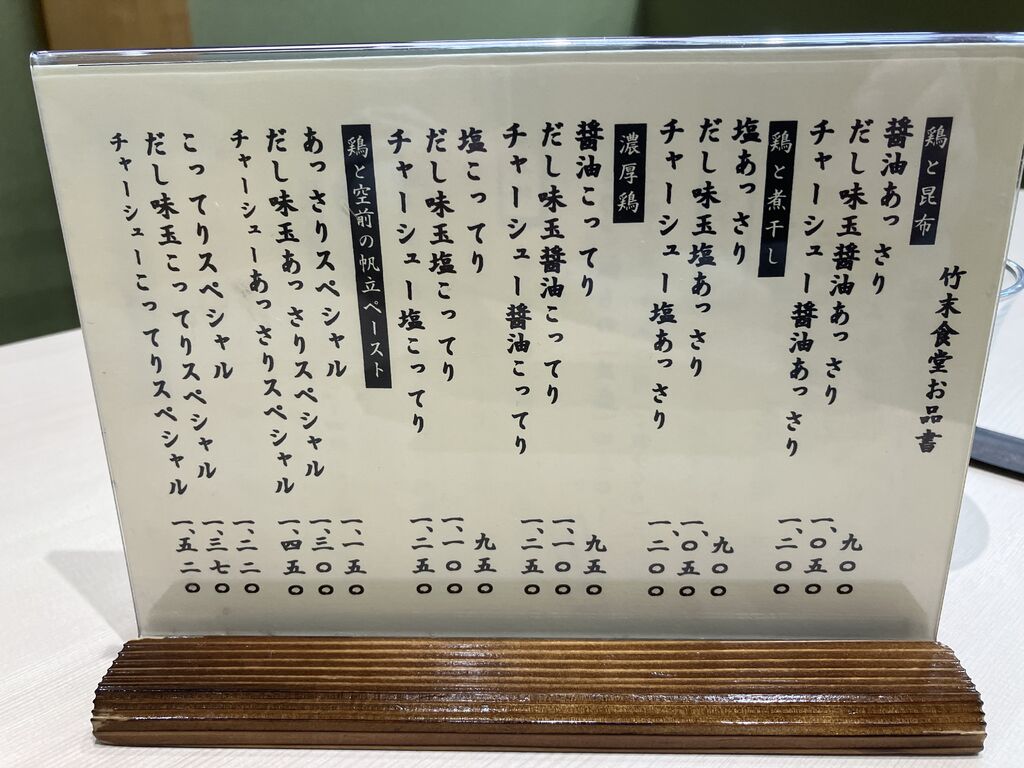 竹末食堂お品書
鶏と昆布
醤油あっさり 九〇〇
だし味玉醤油あっさり 一、〇五〇
チャーシュー醤油あっさり 一、二〇〇
鶏と煮干し
塩あっさり 九〇〇
だし味玉塩あっさり 一、〇五〇
チャーシュー塩あっさり 一、二〇〇
濃厚鶏
醤油こってり 九五〇
だし味玉醤油こってり 一、一〇〇
チャーシュー醤油こってり 一、二五〇
塩こってり 九五〇
だし味玉塩こってり 一、一〇〇
チャーシュー塩こってり 一、二五〇
鶏と空前の帆立ペースト
あっさりスペシャル 一、一五〇
だし味玉あっさりスペシャル 一、三〇〇
チャーシューあっさりスペシャル 一、四五〇
こってりスペシャル 一、二二〇
だし味玉こってりスペシャル 一、三七〇
チャーシューこってりスペシャル 一、五二〇